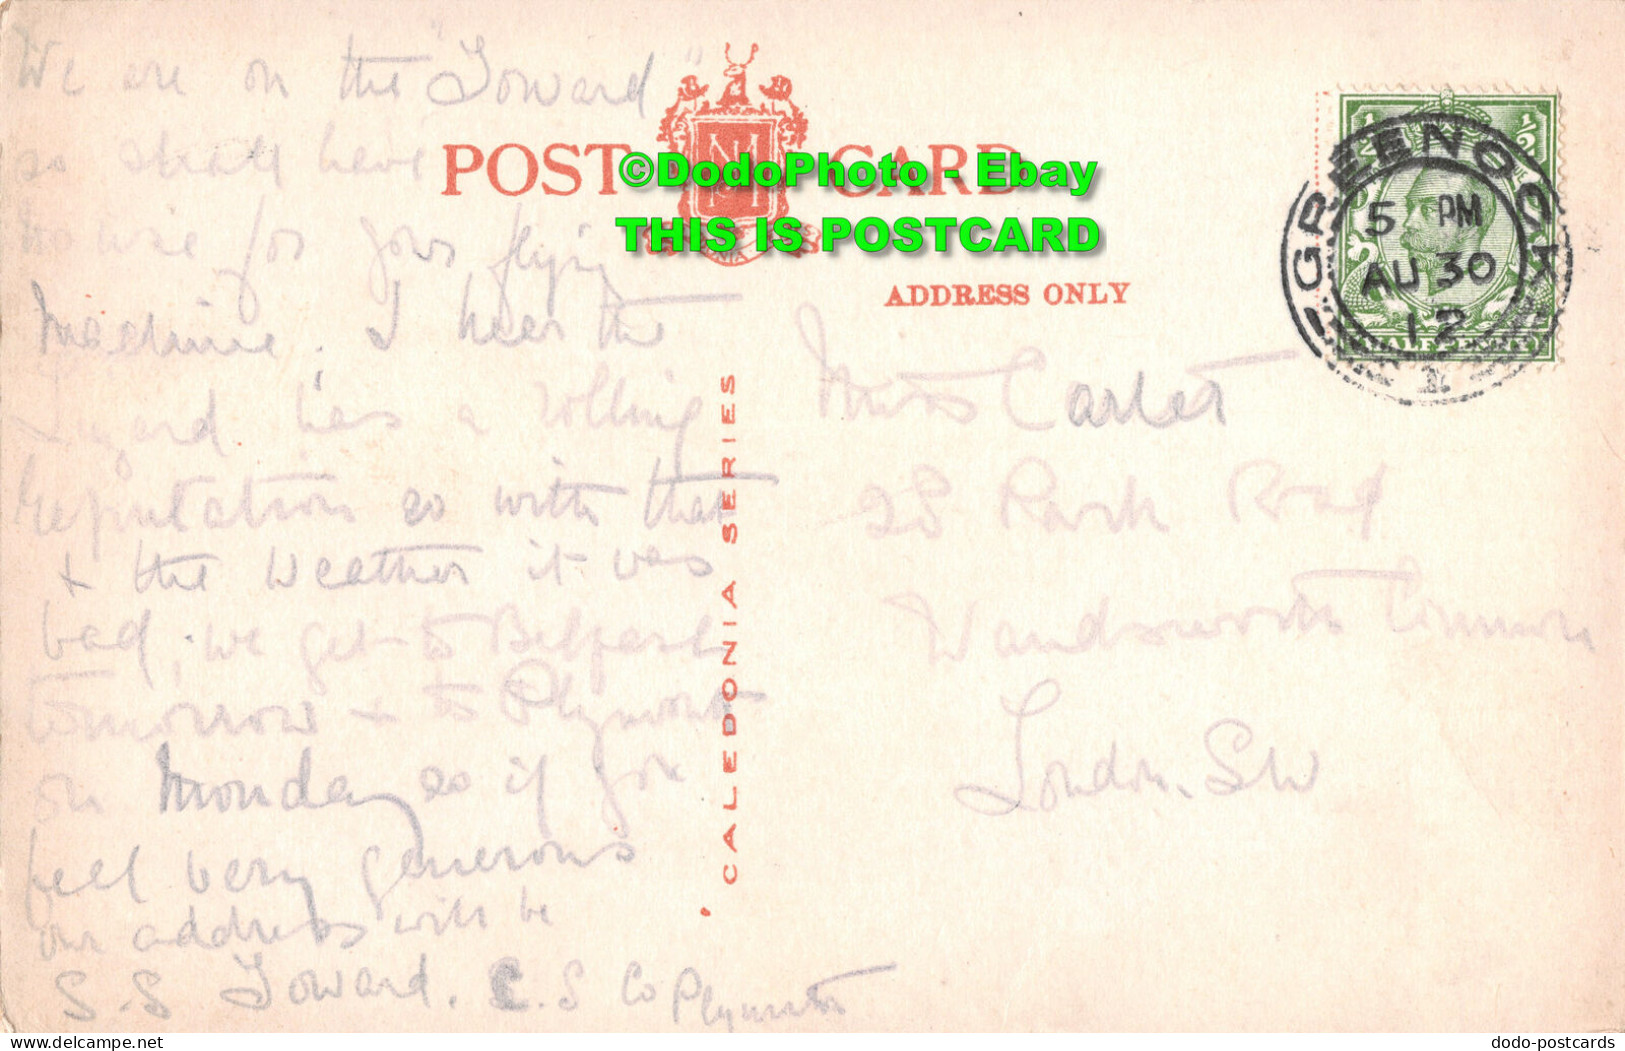 We are on the "Toward"
so shall have
for your flying
Machine. I hear the
Lizard has a rolling
reputation so with that
+ the weather it was
bad, we get to Belfast
tomorrow + to Plymouth
on Monday so if you
feel very generous
our address will be
S.S Toward. C.S Co Plymouth
POST CARD
ADDRESS ONLY
CALEDONIA SERIES
©DodoPhoto - Ebay
THIS IS POSTCARD
Miss Carter
28 Park Road
Wandsworth Common
London. SW
GREENOCK
5 PM
AU 30
12
1
½ ½
HALFPENNY
dodo-postcards